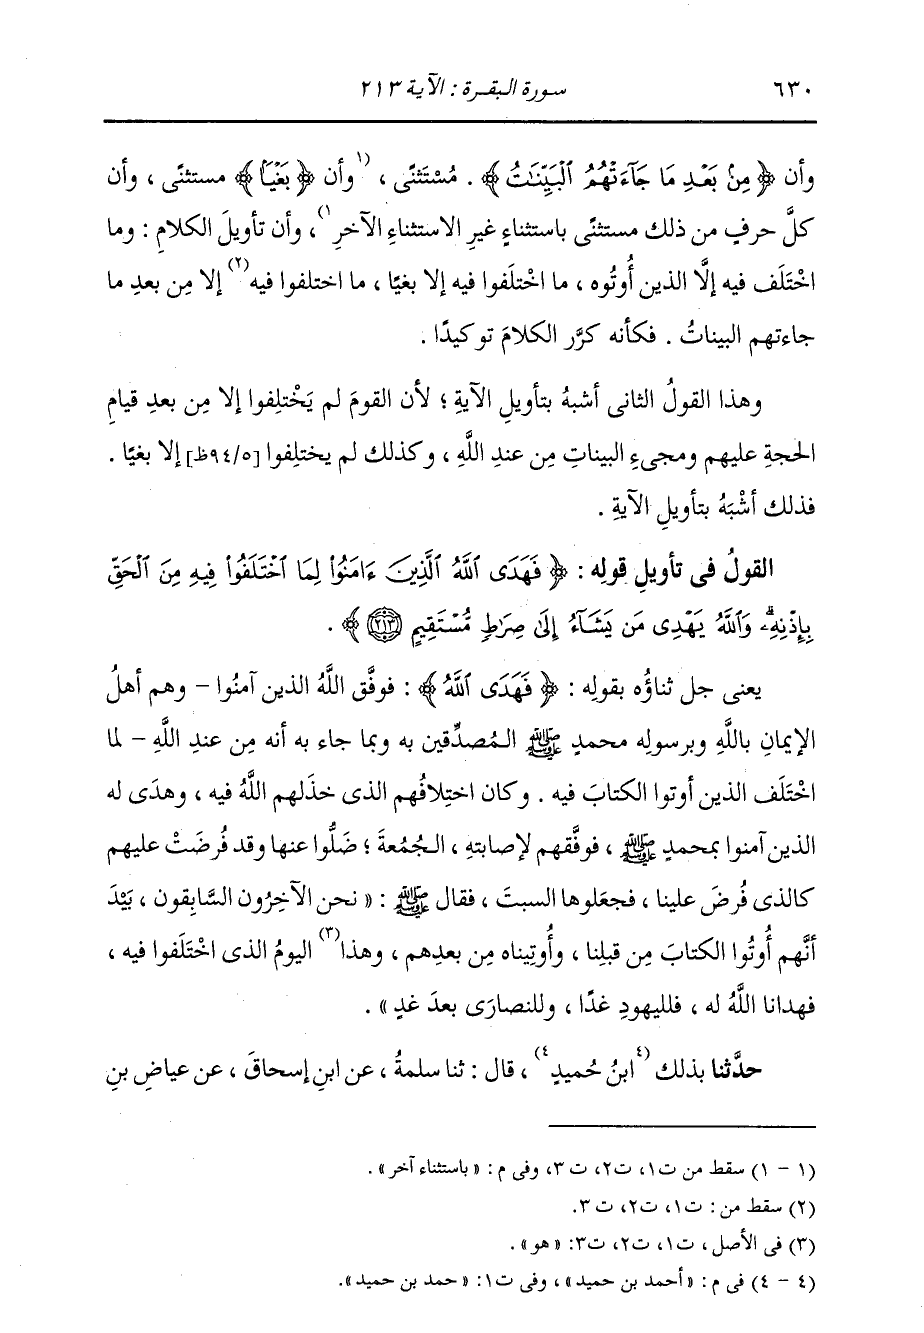 ٦٣٠ سورة البقرة : الآية ٢١٣
وأن ﴿ مِنْ بَعْدِ مَا جَآءَتْهُمُ ٱلْبَيِّنَٰتُ ﴾ . مُسْتَثنًى ، (١وأن ﴿ بَغْيًا ﴾ مستثنًى ، وأن
كلَّ حرفٍ من ذلك مستثنًى باستثناءٍ غيرِ الاستثناءِ الآخرِ١) ، وأن تأويلَ الكلامِ : وما
اخْتَلَف فيه إلَّا الذين أُوتُوه ، ما اخْتلَفوا فيه إلا بغيًا ، ما اختلفوا فيه(٢) إلا مِن بعدِ ما
جاءتهم البيناتُ . فكأنه كرَّر الكلامَ توكيدًا .
وهذا القولُ الثانى أشبهُ بتأويلِ الآيةِ ؛ لأن القومَ لم يَخْتلِفوا إلا مِن بعدِ قيامِ
الحجةِ عليهم ومجىءِ البيناتِ مِن عندِ اللَّهِ ، وكذلك لم يختلِفوا [٩٤/٥ظ] إلا بغيًا .
فذلك أشْبَهُ بتأويلِ الآيةِ .
القولُ فى تأويلِ قولِه : ﴿ فَهَدَى ٱللَّهُ ٱلَّذِينَ ءَامَنُوا۟ لِمَا ٱخْتَلَفُوا۟ فِيهِ مِنَ ٱلْحَقِّ
بِإِذْنِهِۦۗ وَٱللَّهُ يَهْدِى مَن يَشَآءُ إِلَىٰ صِرَٰطٍ مُّسْتَقِيمٍ ٢١٣ ﴾ .
يعنى جل ثناؤُه بقولِه : ﴿ فَهَدَى ٱللَّهُ ﴾ : فوفَّق اللَّهُ الذين آمنُوا – وهم أهلُ
الإيمانِ باللَّهِ وبرسولِه محمدٍ ﷺ المُصدِّقين به وبما جاء به أنه مِن عندِ اللَّهِ – لما
اخْتَلَف الذين أوتوا الكتابَ فيه . وكان اختِلافُهم الذى خذَلهم اللَّهُ فيه ، وهدَى له
الذين آمنوا بمحمدٍ ﷺ ، فوفَّقهم لإصابتهِ ، الجُمُعةَ ؛ ضَلُّوا عنها وقد فُرضَتْ عليهم
كالذى فُرضَ علينا ، فجعَلوها السبتَ ، فقال ﷺ : « نحن الآخِرُون السَّابِقون ، بَيْدَ
أنَّهم أُوتُوا الكتابَ مِن قبلِنا ، وأُوتِيناه مِن بعدِهم ، وهذا(٣) اليومُ الذى اخْتَلَفوا فيه ،
فهدانا اللَّهُ له ، فلليهودِ غدًا ، وللنصارَى بعدَ غدٍ » .
حدَّثنا بذلك (٤ابنُ حُميدٍ٤) ، قال : ثنا سلمةُ ، عن ابنِ إسحاقَ ، عن عياضِ بنِ
(١ – ١) سقط من ت١، ت٢، ت٣، وفى م : « باستثناء آخر » .
(٢) سقط من : ت١، ت٢، ت٣.
(٣) فى الأصل ، ت١، ت٢، ت٣: « هو » .
(٤ – ٤) فى م : « أحمد بن حميد » ، وفى ت١: « حمد بن حميد ».